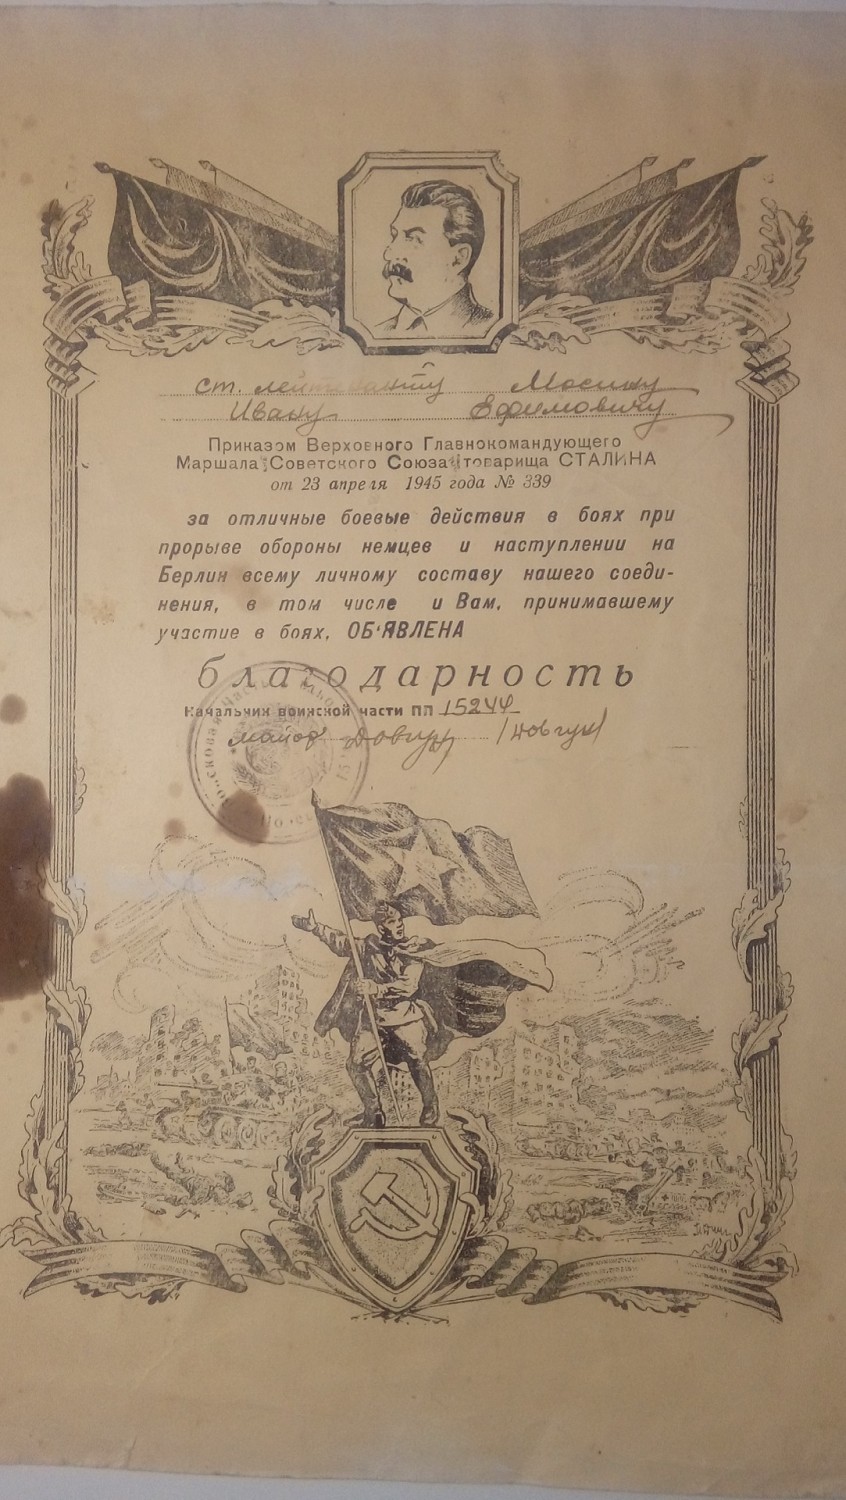 ст. лейтенанту Мосину
Ивану Ефимовичу
Приказом Верховного Главнокомандующего
Маршала Советского Союза товарища СТАЛИНА
от 23 апреля 1945 года № 339
за отличные боевые действия в боях при
прорыве обороны немцев и наступлении на
Берлин всему личному составу нашего соеди-
нения, в том числе и Вам, принимавшему
участие в боях, ОБ‘ЯВЛЕНА
благодарность
Начальник воинской части ПП 15244
майор Довгун /Довгун/